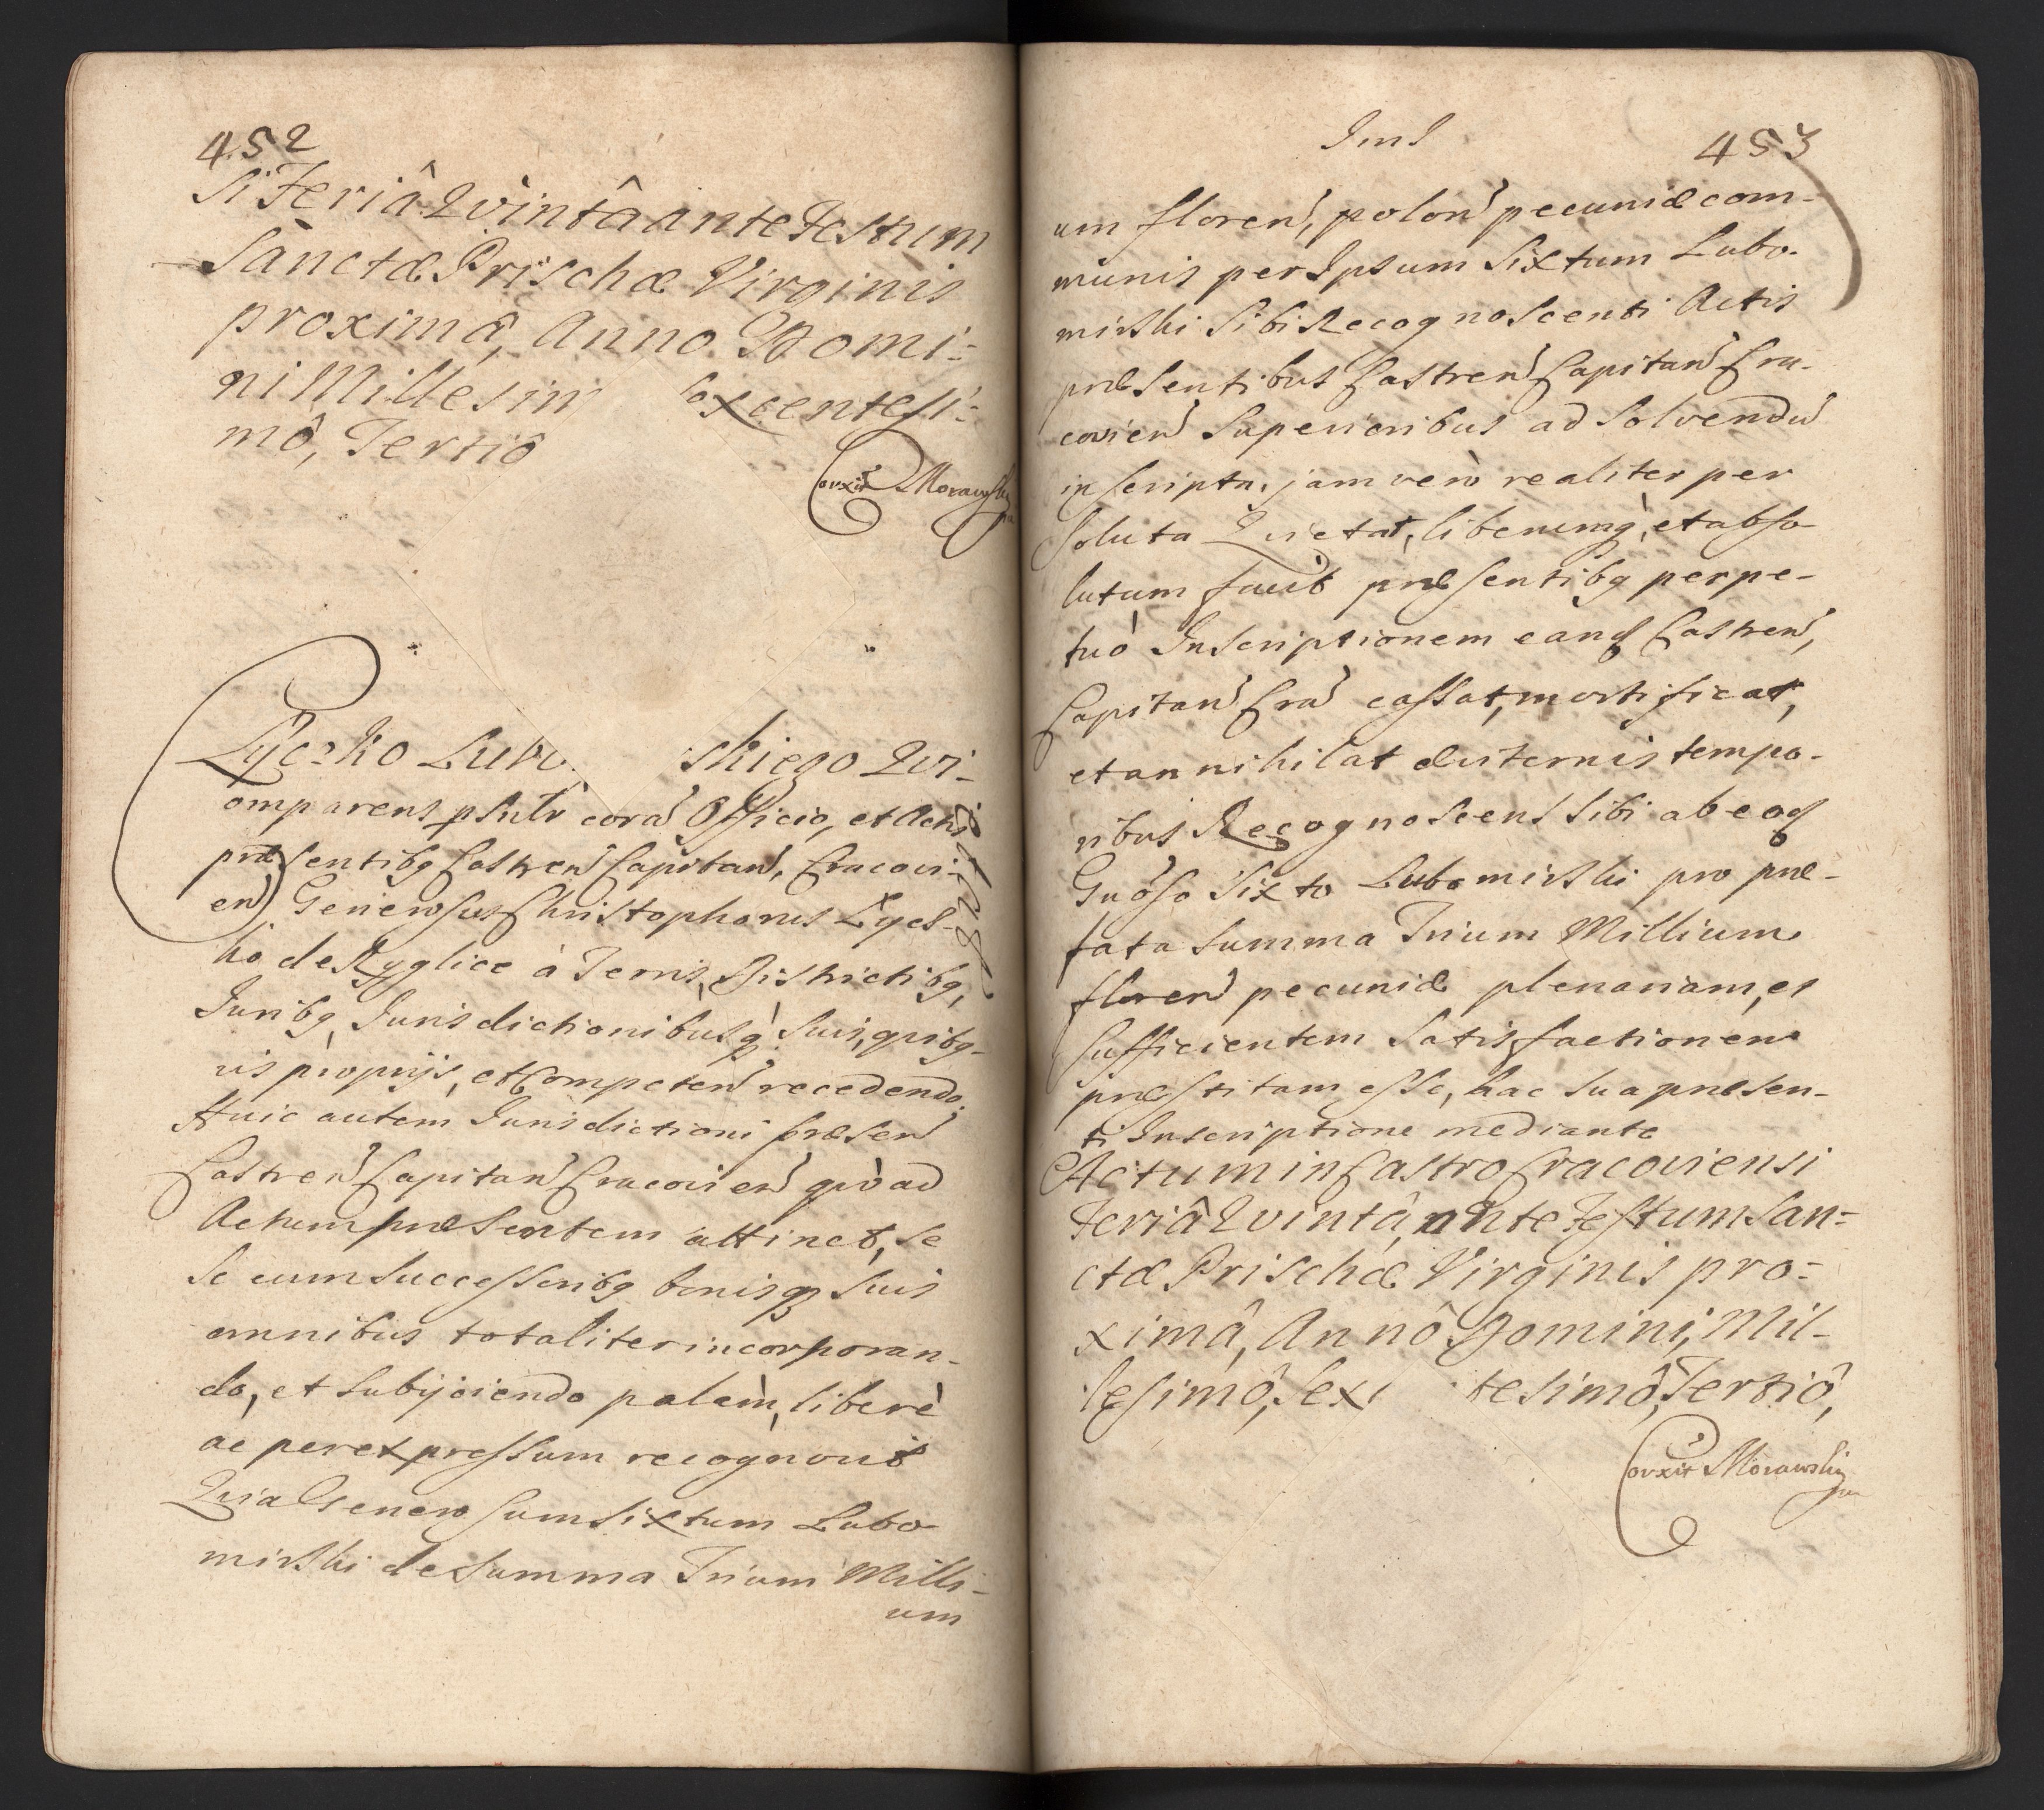 452
si Feriâ Qvintâ ante Festum
Sanctæ Prischæ Virginis
proximâ, Anno Domi-
ni Millesim excentesi-
mô, Tertiô
Corxit Morawski
Lyczko Lubo skiego Qvi-
tat
omparens psnltr corā Officio, et Actis
præsentibq Castren Capitan, Cracovi-
en Generosus Christophorus Lycs-
ko de Ryglice à Terris, Districtibq,
Juribq, Jurisdictionibusq̀ suis, qvibq-
vis proprijs, et Competen recedendo,
Huic autem Jurisdictioni præsen
Castren Capitan Cracovien qvò ad
Actum præsentem attinet, se
se cum successoribq bonisqz suis
omnibus totaliter incorporan-
do, et subijciendo palàm, liberè
ac per expressum recognovit
Qvia Generosum Sixtum Lubo-
mirski de Summa Trium Milli-
um
453
um floren, polon pecuniæ com-
munis per Ipsum Sixtum Lubo-
mirski sibi Recognoscenti Actis
præsentibus Castren Capitan Cra-
covien Superioribus ad Solvendū
inscripta, jam verò realiter per
soluta Qvietat, liberumq̀, et abso-
lutum facit præsentibq perpe-
tuò Inscriptionem eand Castren,
Capitan Cra cassat, mortificat,
et annihilat æviternis tempo-
ribus Recognoscens sibi ab eod
Gnôso Sixto Lubomirski pro præ-
fata summa Trium Millium
floren pecuniæ plenariam, et
sufficientem Satisfactionem
præstitam esse, hac sua præsen-
ti Inscriptione mediante
Actum in Castro Cracoviensi
Feriâ Qvintâ, ante Festum San-
ctæ Prischæ Virginis pro-
ximâ, Annô Domini, Mil-
lesimô, Sex tesimô, Tertiô,
Corxit Morawski